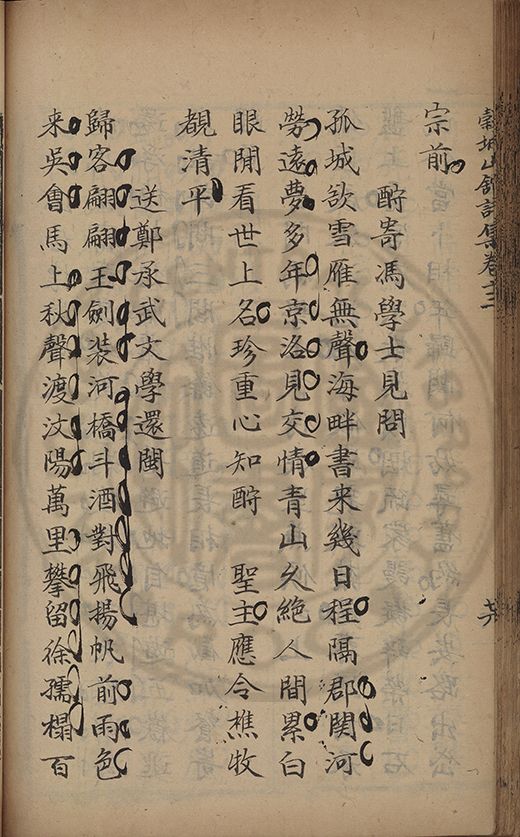 穀城山館詩集卷十三
宗前
酧寄馮學士見問
孤城欲雪雁無聲海畔書来幾日程隔郡関河
勞遠夢多年京洛見交情青山久絶人間累白
眼閒看世上名珍重心知酧　聖主應令樵牧
覩清平
送鄭承武文學還閩
歸客翩翩玉劍裝河橋斗酒對飛揚帆前雨色
来吳會馬上秋聲渡汶陽萬里攀留徐孺榻百